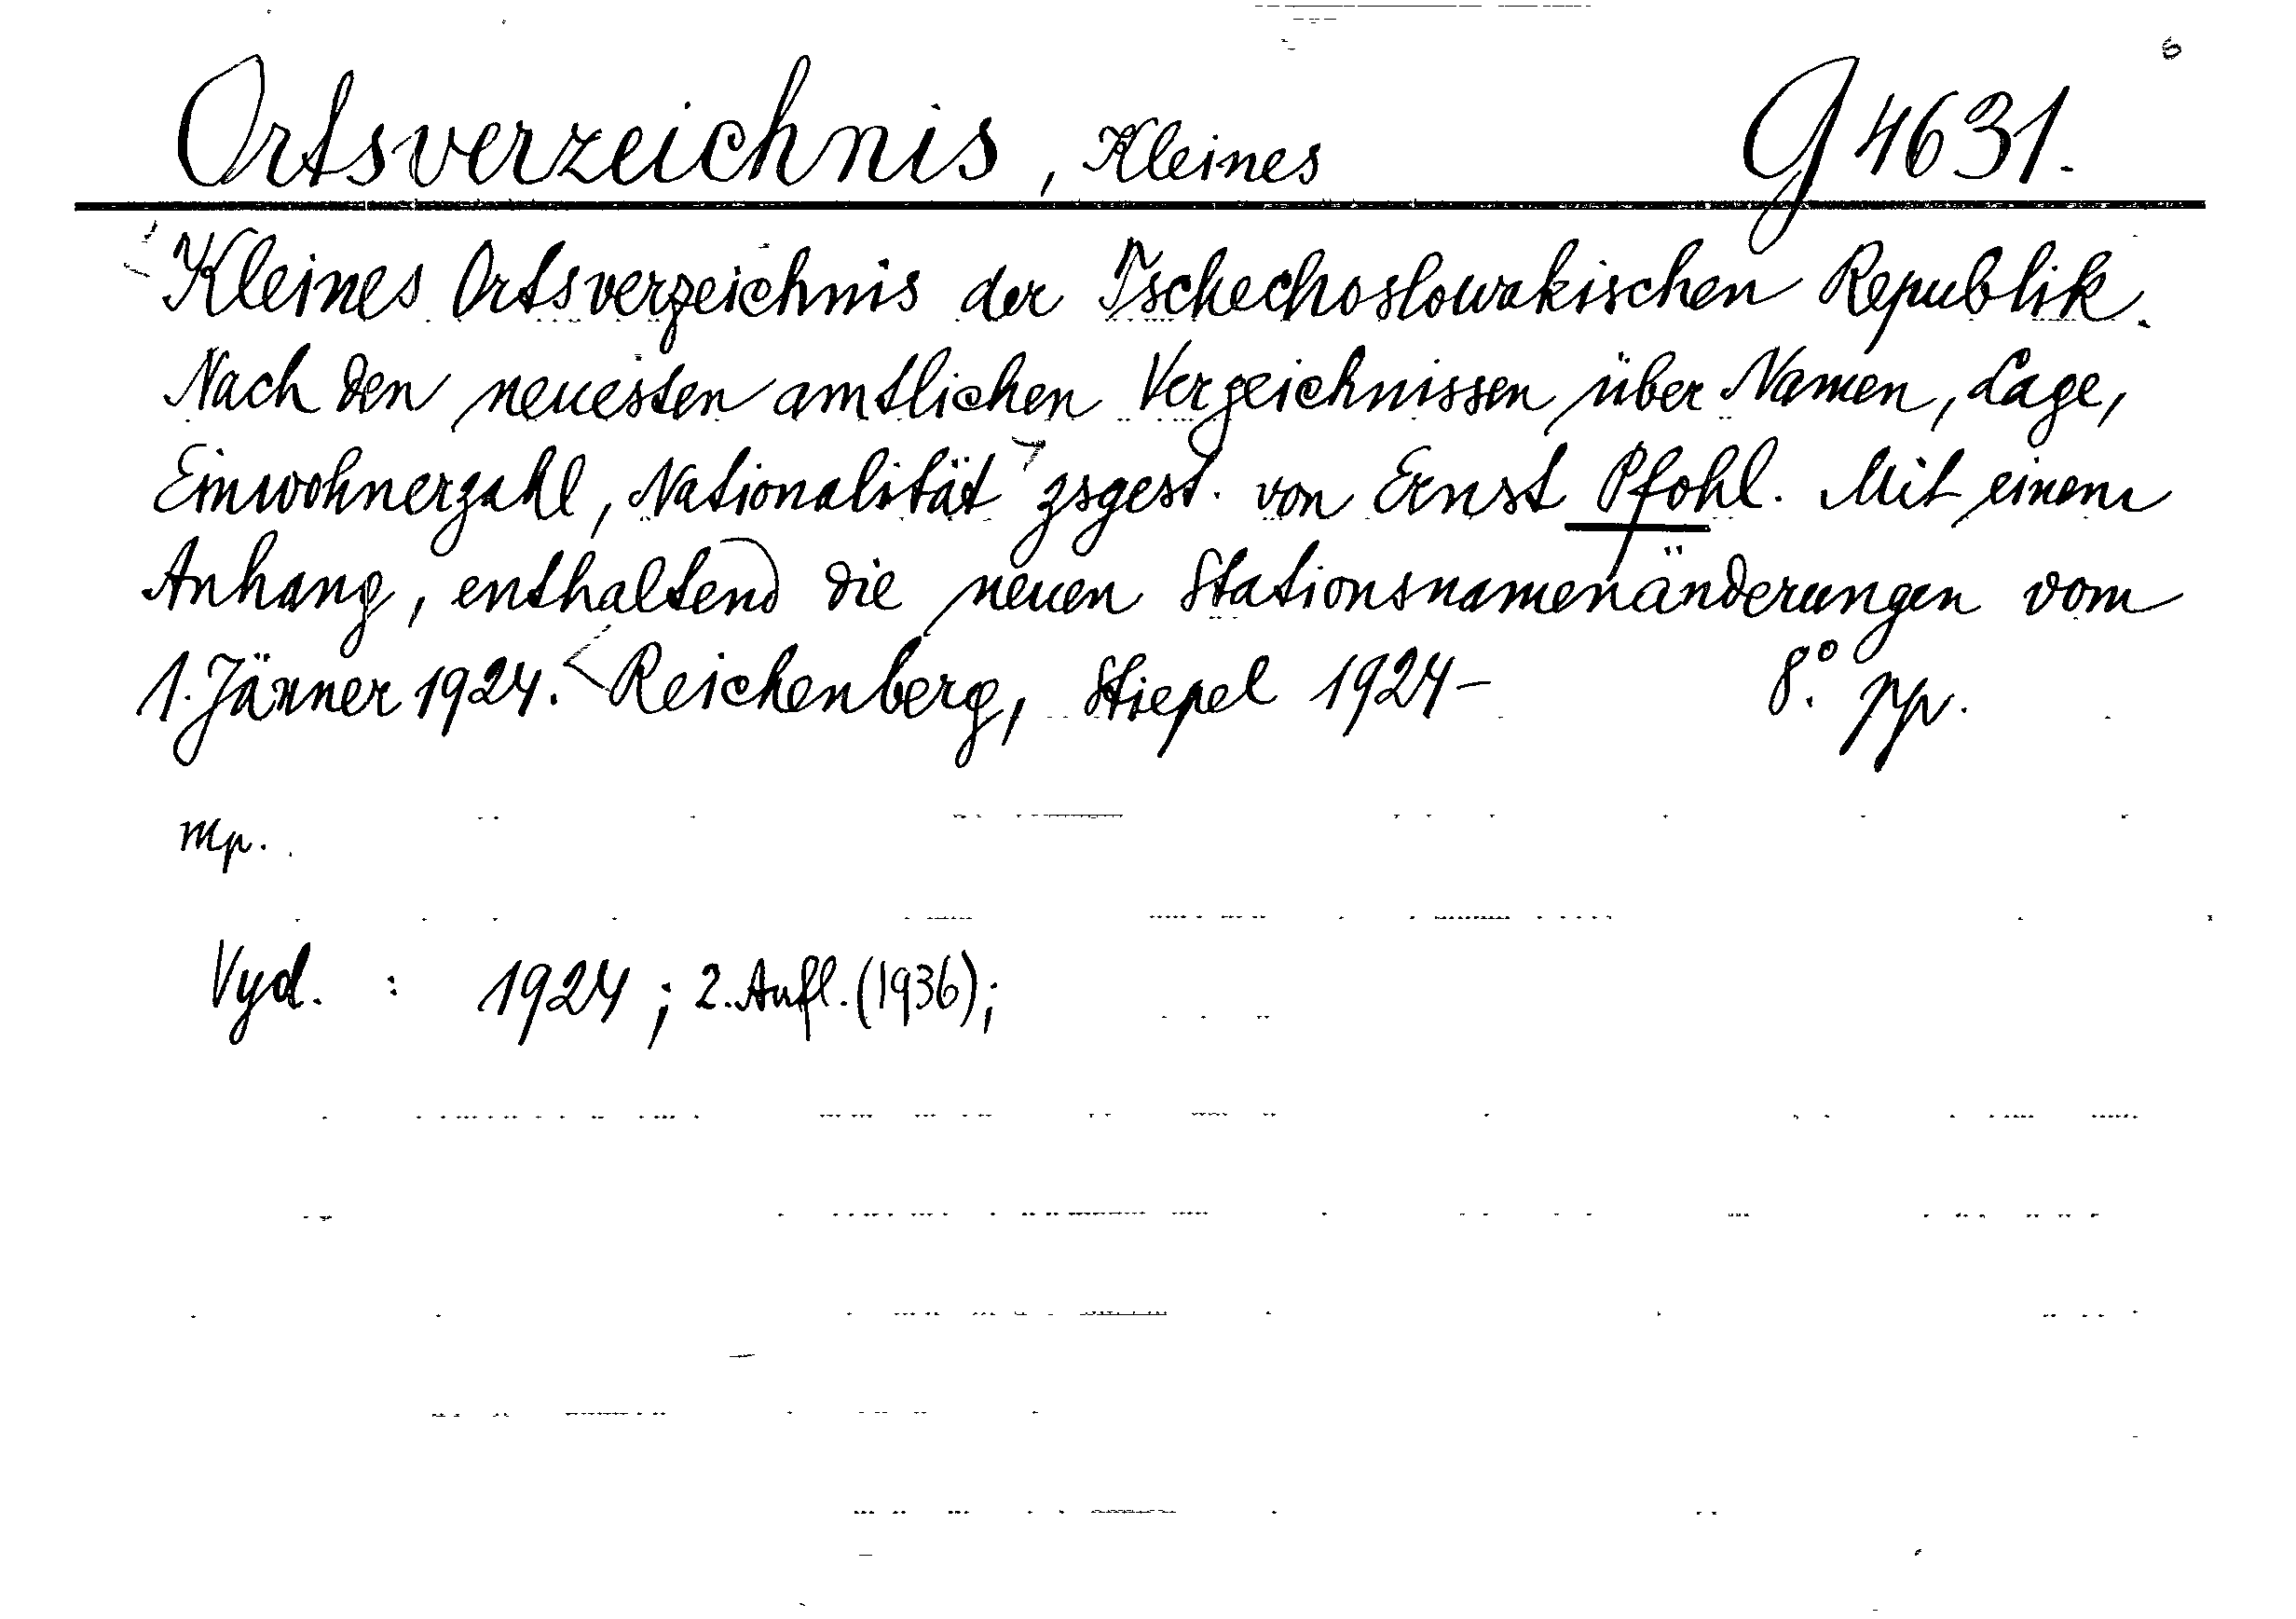 Ortsverzeichnis, Kleines G 4631.
Kleines Ortsverzeichnis der Tschechoslowakischen Republik.
Nach den neuesten amtlichen Verzeichnissen über Namen, Lage,
Einwohnerzahl, Nationalität zsgest. von Ernst Pfohl. Mit einem
Anhang, enthaltend die neuen Stationsnamenänderungen vom
1. Jänner 1924. Reichenberg, Stiepel 1924- 8°. pp.
mp.
Vyd. : 1924; 2. Aufl. (1936);